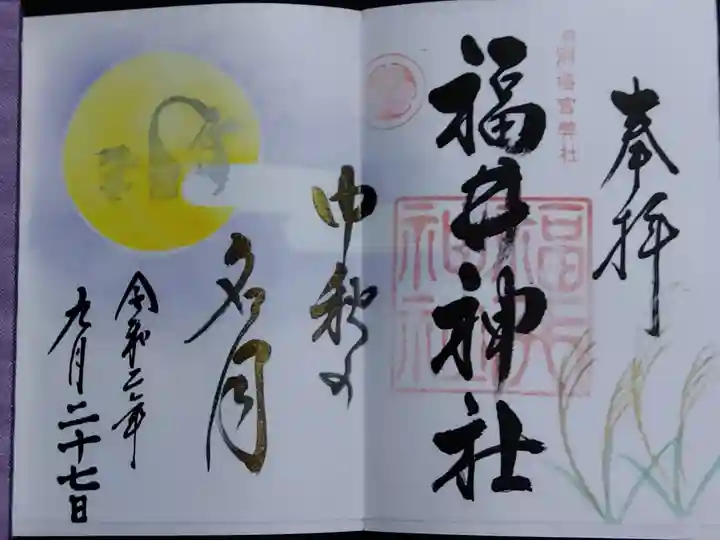 奉拝
別格官幣社
福井神社
福井神社
中秋の
名月
令和二年
九月二十七日